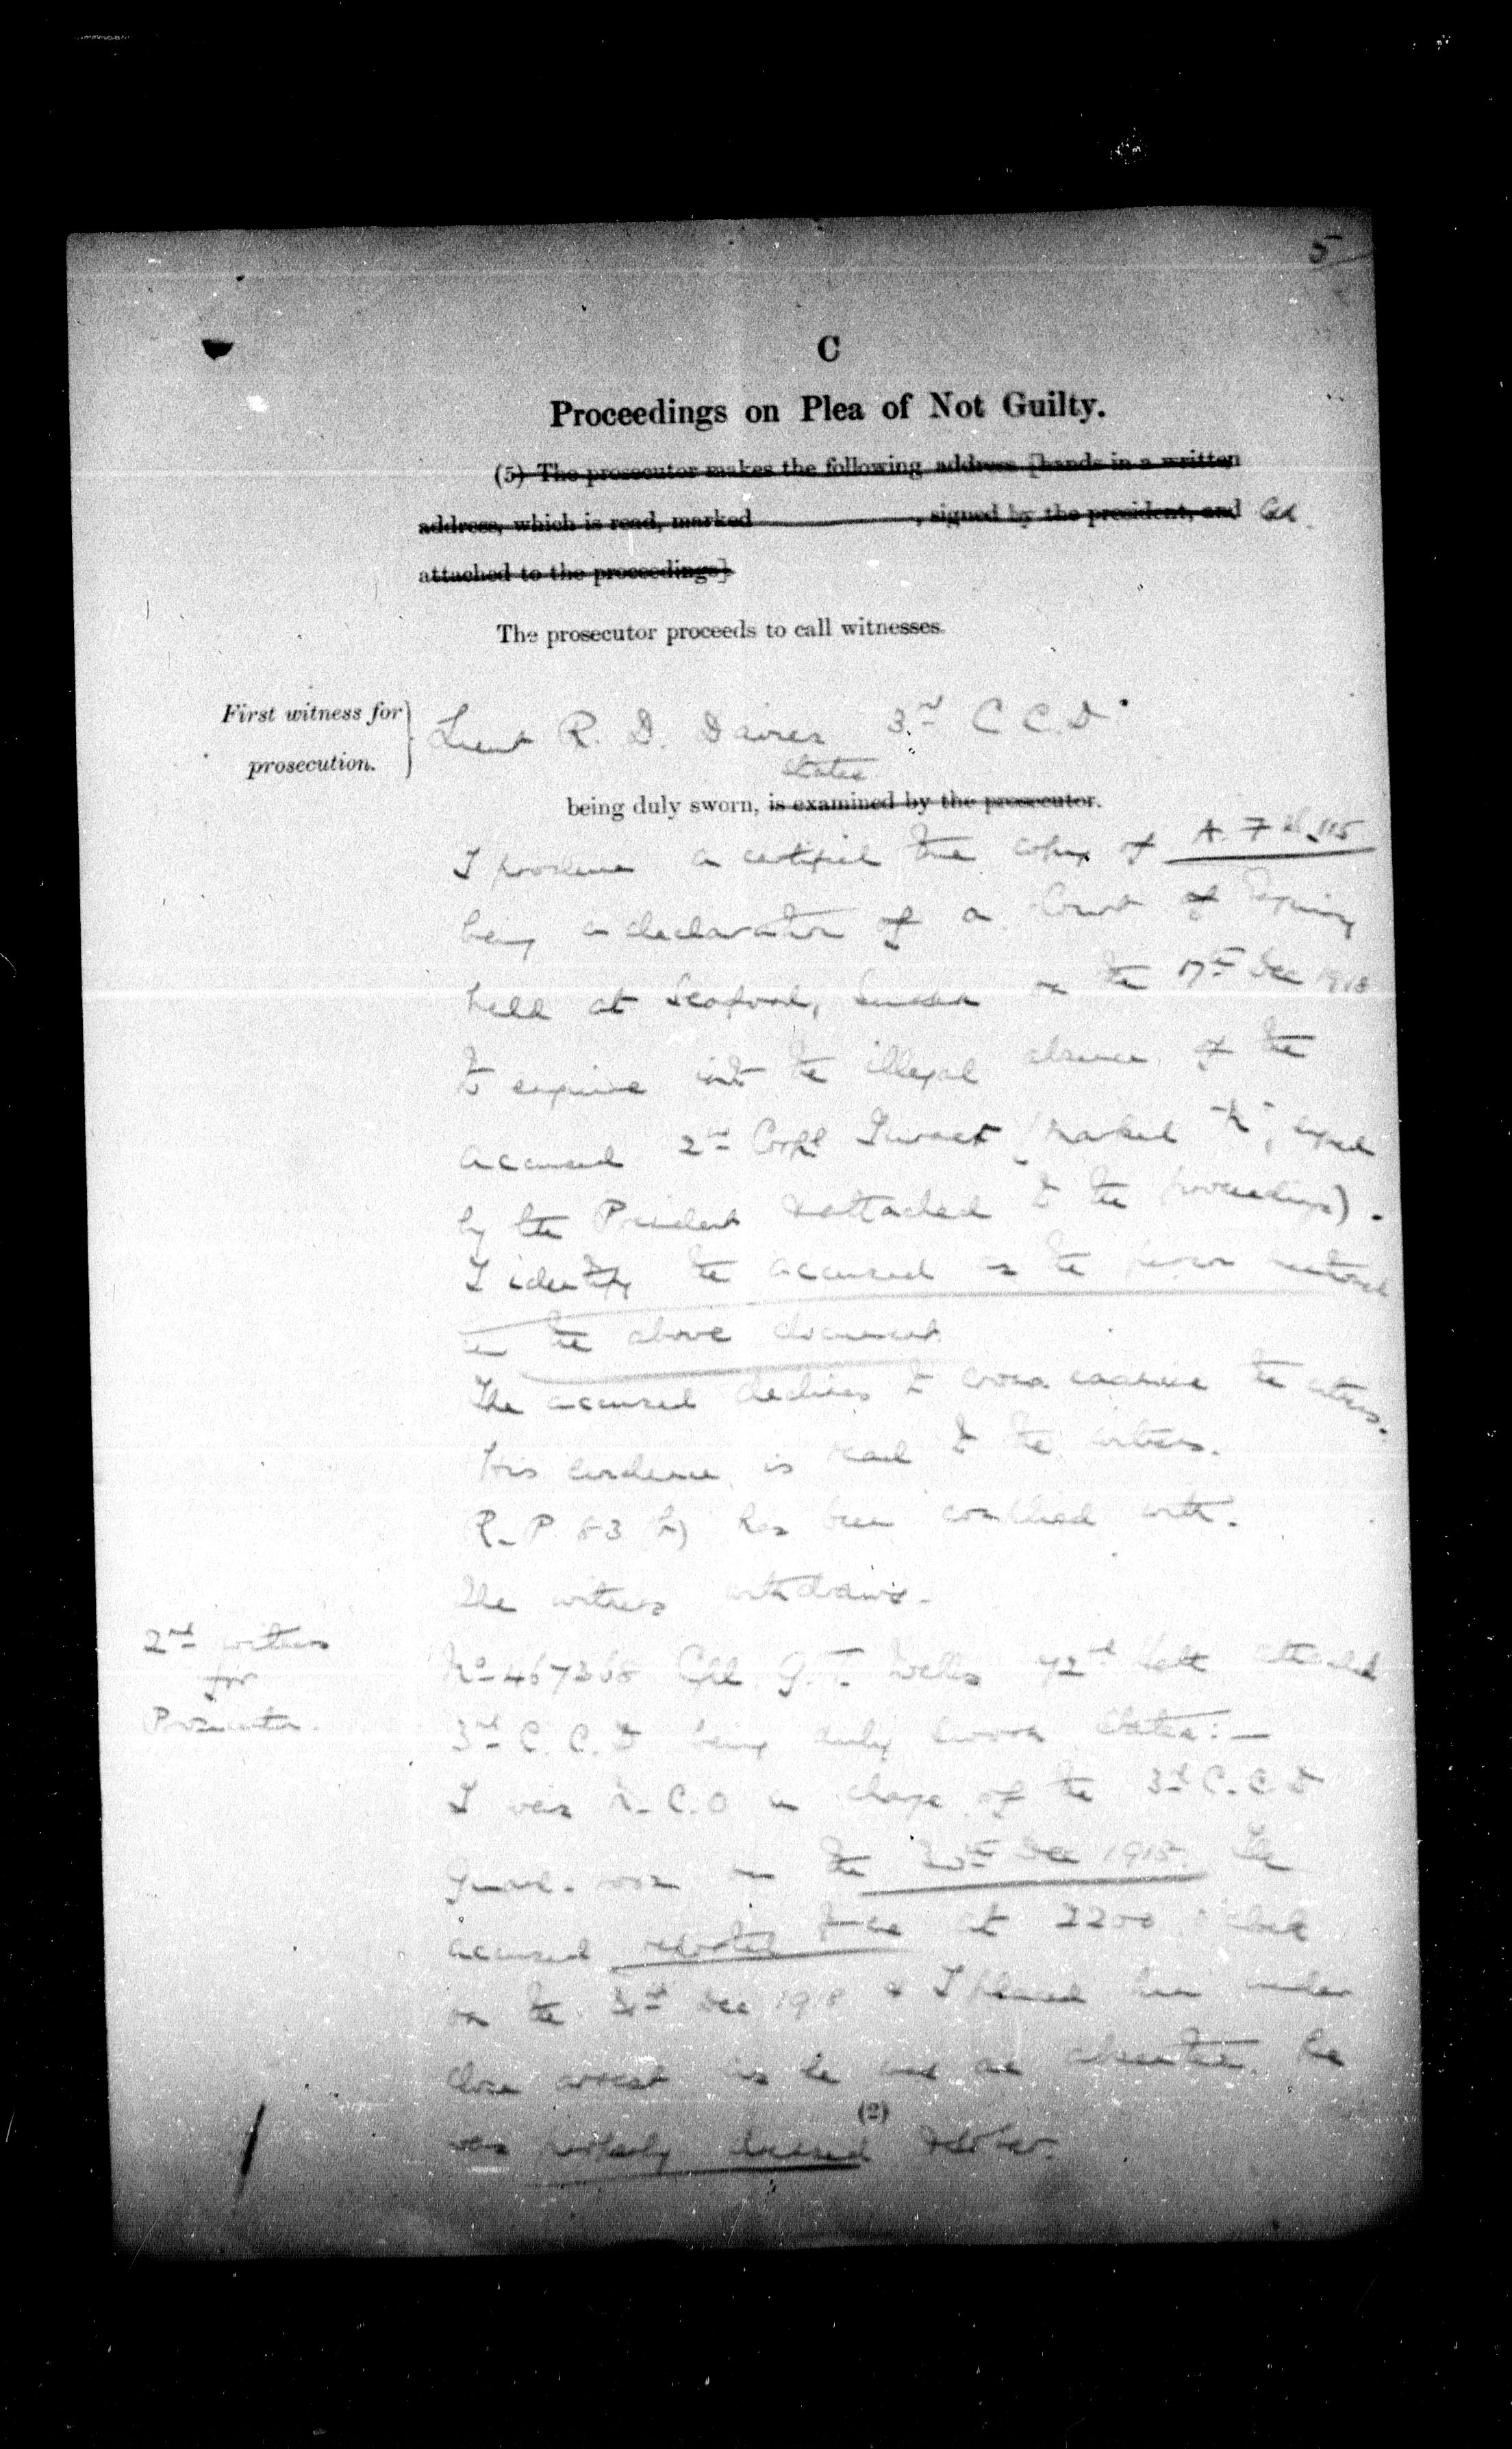 5
C
Proceedings on Plea of Not Guilty.
(5) The prosecutor makes the following address [hands in a written
address, which is read, marked , signed by the president, and
attached to the proceedings]
The prosecutor proceeds to call witnesses.
First witness for
prosecution.
Lieut R. D. Davies 3rd C C. D.
States
being duly sworn, is examined by the prosecutor.
I produce a certified true copy of A. F. B. 115
being a declaration of a Court of Inquiry
held at Seaford, Sussex on the 17th Dec 1918
to enquire into the illegal absence of the
accused 2nd Corpl (marked signed
by the President & attached to the proceedings).
I identify the accused as the person mentioned
in the above document.
The accused declines to cross examine the witness.
His evidence is read to the witness.
R. P. 83 (b) has been complied with.
The witness withdraws.
2nd witness
for
Prosecution.
No 467368 Cpl G. T. Wells 72nd Batt attached
3rd C. C. D being duly sworn States:—
I was N. C. O in charge of the 3rd C. C. D
Guard room on the Dec 1918. The
accused reported to me at 2200 o'clock
on the Dec 1918 & I placed him under
close arrest as he was an absentee. He
was properly dressed & sober.
(2)